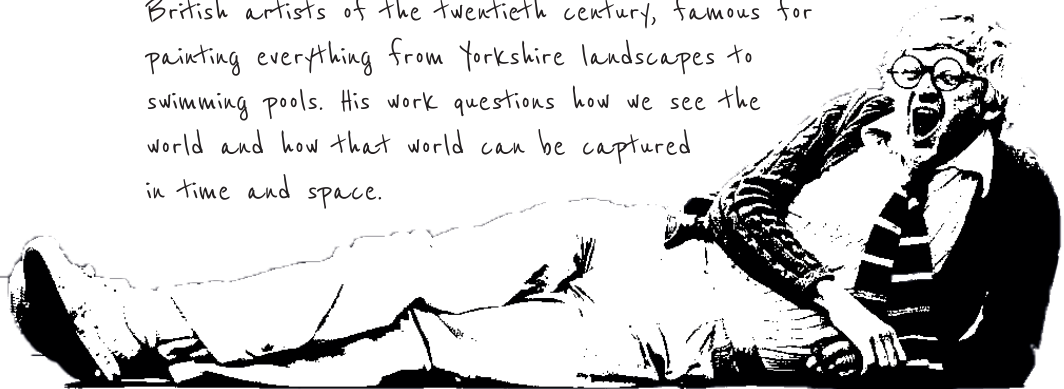 British artists of the twentieth century, famous for
painting everything from Yorkshire landscapes to
swimming pools. His work questions how we see the
world and how that world can be captured
in time and space.